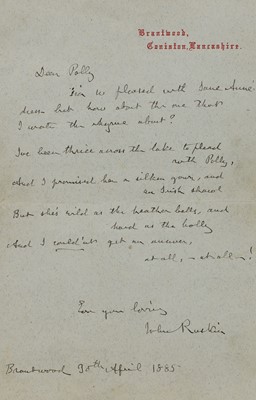 Brantwood,
Coniston, Lancashire.
Dear Polly
I'm so pleased with Jane Anne's
dress but how about the one that
I wrote the rhyme about?
I've been thrice across the lake to plead
with Polly,
And I promised her a silken gown, and
an Irish shawl
But she's wild as the heather bells, and
hard as the holly
And I couldn't get an answer,
at all, – at all – !
Ever your loving
John Ruskin
Brantwood 30th April 1885